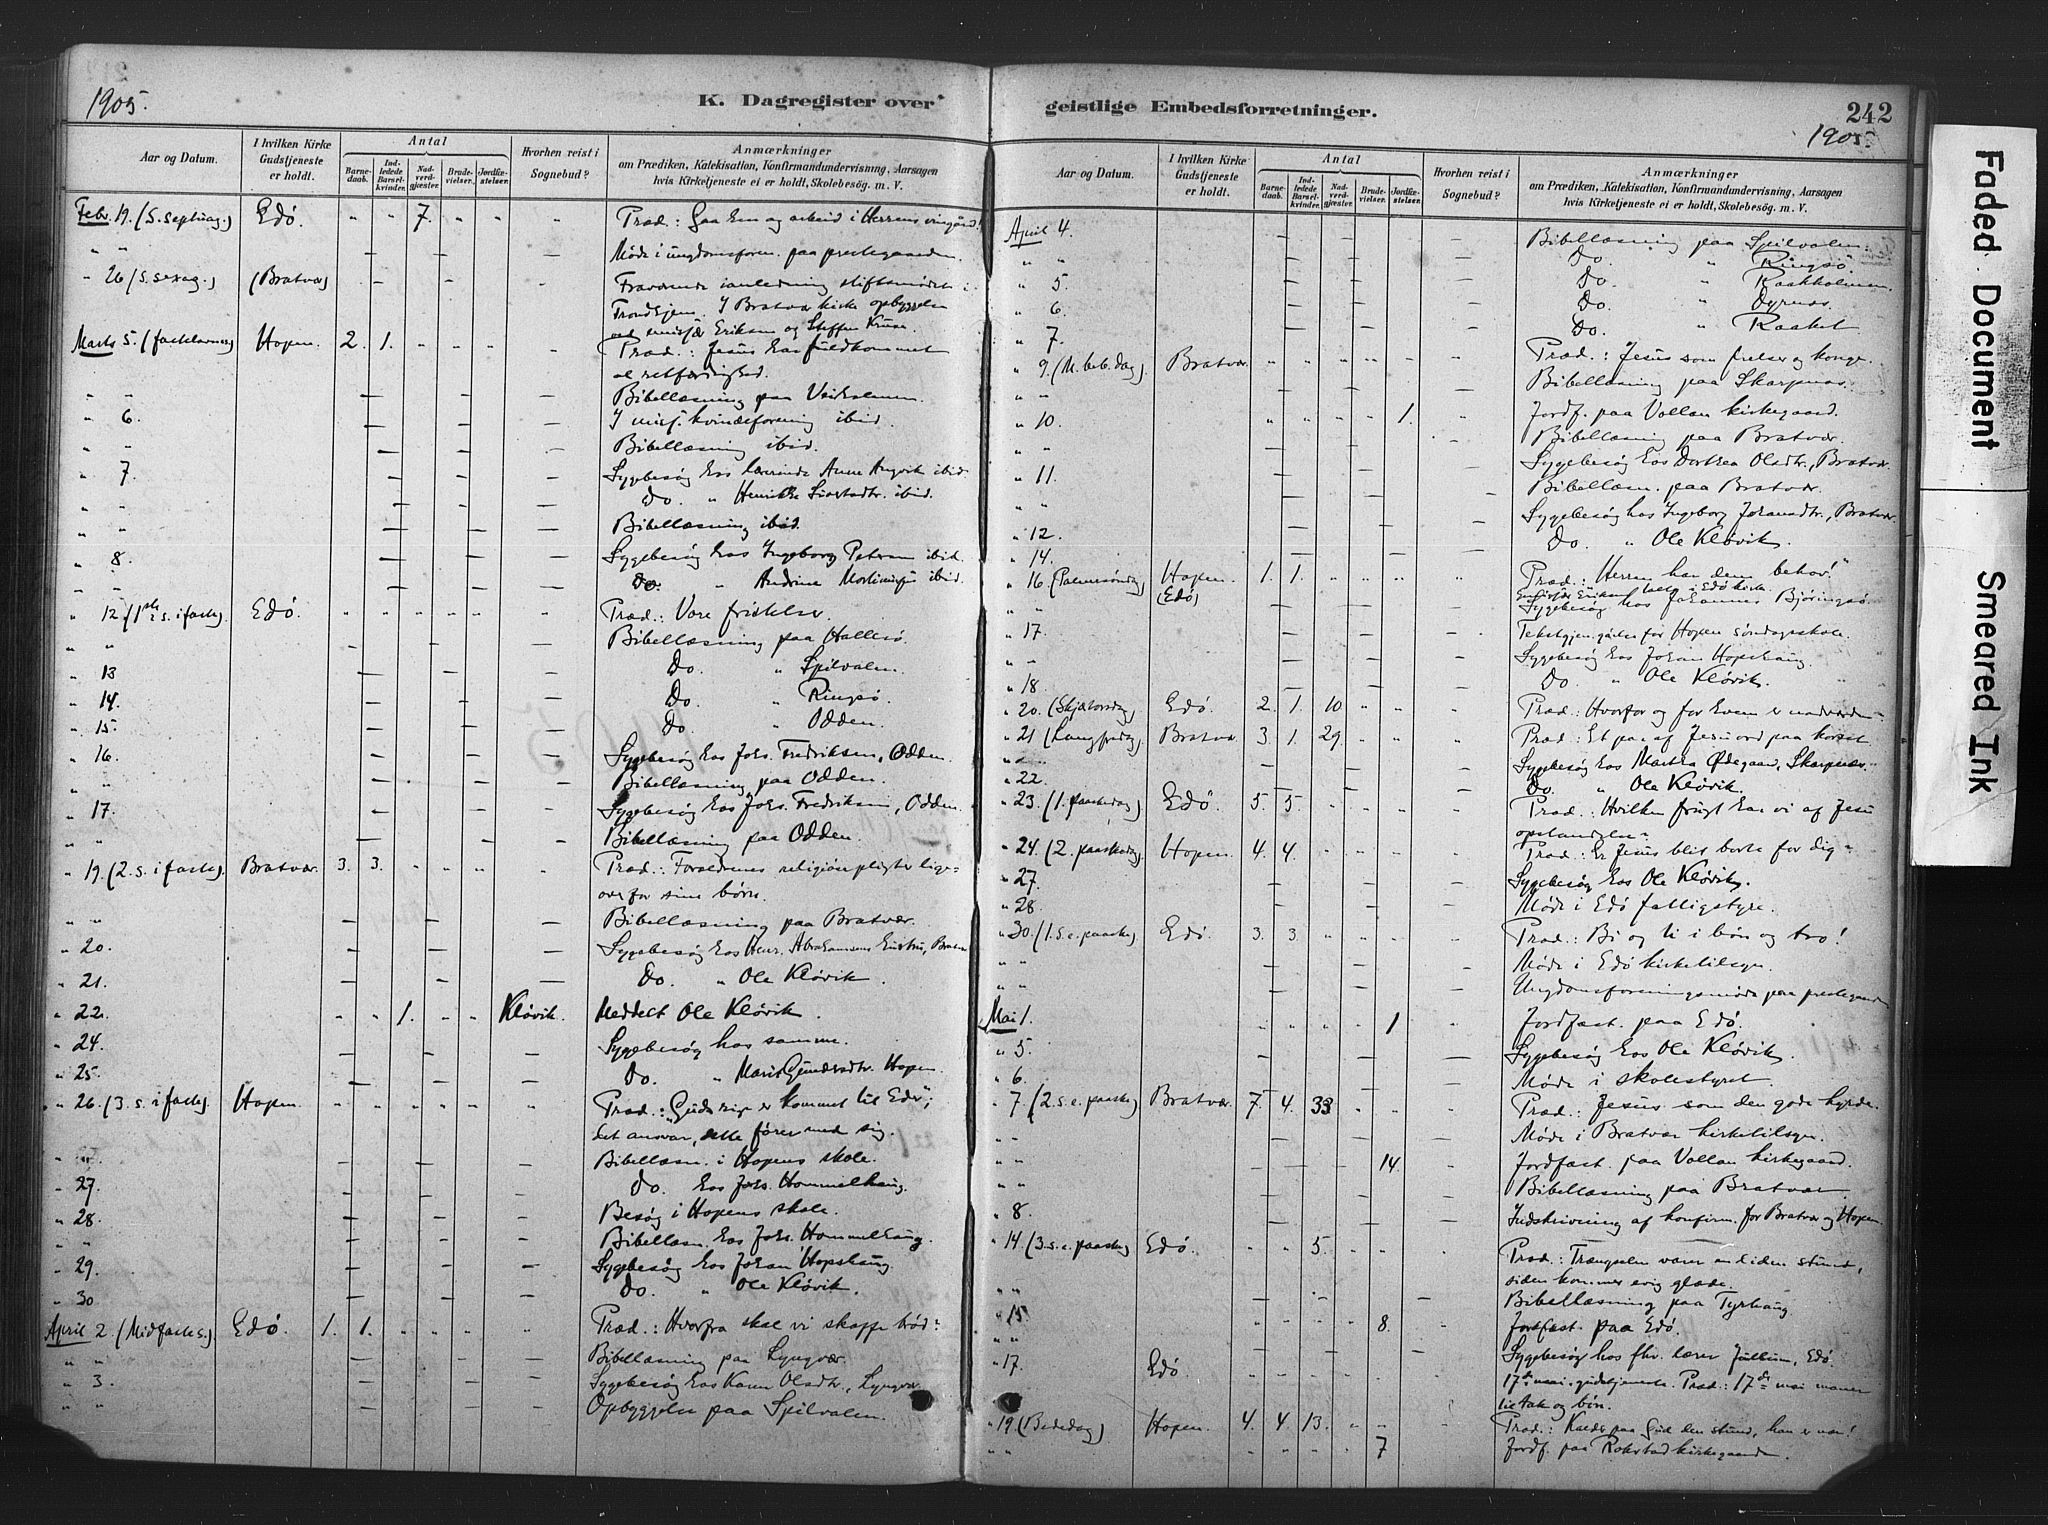 1905.
K. Dagregister over
Aar og Datum.
I hvilken Kirke Gudstjeneste er holdt.
Antal
Barnedaab.
Indledede Barselkvinder.
Nadverdgjester.
Brudevielser.
Jordfæstelser.
Hvorhen reist i Sognebud?
Anmærkninger
om Prædiken, Katekisation, Konfirmandundervisning, Aarsagen
hvis Kirketjeneste ei er holdt, Skolebesøg. m. V.
Febr. 19. (S. septuag.) Edö " " 7. " " Præd.: Gaa hen og arbeid i Herrens vingård!
" " Möde i ungdomsforen. paa prestegaarden.
" 26 (S. sexag.) (Bratvær) Fraværende i anledning stiftsmödet i
Trondhjem. I Bratvær kirke opbyggelse
ved emissær Eriksen og Steffen Kruse.
Marts 5. (fastelavns) Hopen. 2. 1. " " " Præd.: Jesus har fuldkommet
al retfærdighed.
" " Bibellæsning paa
" 6. I misj. kvindeforening ibid.
" " Bibellæsning ibid.
" 7. Sygebesög hos lærerinde Anne Angvik ibid.
" " Do. " Henrikke ibid.
" " Bibellæsning ibid.
" 8. Sygebesög hos Ingeborg Petersen ibid.
" " Do. " Andrine ibid.
" 12 (1ste s. i faste). Edö. " " " " " Præd.: Vore fristelser.
" " Bibellæsning paa Hallesö.
" 13 Do. " Spilvalen.
" 14. Do. " Ringsö
" 15. Do. " Odden.
" 16. Sygebesög hos Johs. Fredriksen, Odden.
" " Bibellæsning paa Odden.
" 17. Sygebesög hos Johs. Fredriksen, Odden.
" " Bibellæsning paa Odden.
" 19. (2. s. i faste). Bratvær. 3. 3. " " " Præd.: Forældrenes religiöse pligter lige-
over for sine börn.
" " Bibellæsning paa Bratvær.
" 20. Sygebesög hos Henr. Abrahamsens hustru, Bratvær
" 21. Do. " Ole Klövik.
" 22. " " 1. " " Klövik. Meddelt Ole Klövik.
" 24. Sygebesög hos samme.
" 25. Do. " Marit Gundersdtr. Hopen.
" 26. (3. s. i faste). Hopen. " " " " " Præd.: "Guds rige er kommet til Eder";
det ansvar, dette förer med sig.
" " Bibellæsn. i Hopens skole.
" 27. Do. hos Johs. Hommelhaug.
" 28. Besög i Hopens skole.
" " Bibellæsn. hos Johs. Hommelhaug.
" 29. Sygebesög hos Johan Hopshaug.
" 30 Do. " Ole Klövik.
April 2. (Midfastes.) Edö. 1. 1. " " " Præd.: Hvorfra skal vi skaffe bröd?
" " Bibellæsning paa Lyngvær.
" 3. Sygebesög hos Karen Olsdtr., Lyngvær.
Opbyggelse paa Spilvalen.
geistlige Embedsforretninger.
242
1905.
Aar og Datum.
I hvilken Kirke Gudstjeneste er holdt.
Antal
Barnedaab.
Indledede Barselkvinder.
Nadverdgjester.
Brudevielser.
Jordfæstelser.
Hvorhen reist i Sognebud?
Anmærkninger
om Prædiken, Katekisation, Konfirmandundervisning, Aarsagen
hvis Kirketjeneste ei er holdt, Skolebesög. m. V.
April 4. Bibellæsning paa Spilvalen.
" " Do. " Ringsö.
" 5. Do. " Raakholmen.
" 6. Do. " Dyrnæs.
" 7. Do. " Raaket
" 9. (M. beb. dag) Bratvær. " " " " " Præd.: Jesus som frelser og konge.
" " Bibellæsning paa Skarpnæs.
" 10. " " " " 1. Jordf. paa Vollan kirkegaard.
" " Bibellæsning paa Bratvær.
" 11. Sygebesög hos Dorthea Olsdtr., Bratvær.
" " Bibellæsn. paa Bratvær.
" 12. Sygebesög hos Ingeborg Johansdtr., Bratvær.
" 14. Do. " Ole Klövik.
" 16. (Palmesöndag) Hopen. (Edö) 1. 1. " " " Præd.: "Herren har dem behov!"
Emissær Eriksen talte i Edö kirke.
" " Sygebesög hos Johannes Björingsö.
" 17. Tekstgjen. for Hopen söndagsskole.
" " Sygebesög hos Johan Hopshaug.
" 18. Do. " Ole Klövik.
" 20. (Skjærtorsdag) Edö. 2. 1. 10 " " Præd.: Hvorfor og for hvem er nadverden?
" 21 (Langfredag) Bratvær 3. 1. 29. " " Præd.: Et par af Jesu ord paa korset
" " Sygebesög hos Martha Ödegaard, Skarpnæs.
" 22. Do. " Ole Klövik.
" 23. (1. paaskedag) Edö. 5. 5. " " " Præd.: Hvilken frugt har vi af Jesu
opstandelse?
" 24. (2. paaskedag). Hopen. 4. 4. " " " Præd.: Er Jesus blit borte for dig?
" 27. Sygebesög hos Ole Klövik.
" 28. Möde i Edö fattigstyre.
" 30. (1. s. e. paaske) Edö. 3. 3. " " " Præd.: Bi og li i bön og tro!
" " Möde i Edö kirketilsyn.
" " Ungdomsforeningsmöde paa prestegaarden
Mai 1. " " " " 1 Jordfæst. paa Edö.
" 5. Sygebesög hos Ole Klövik.
" 6. Möde i skolestyret.
" 7 (2. s. e. paaske) Bratvær. 7. 4. 33 " " Præd.: Jesus som den gode hyrde.
" " Möde i Bratvær kirketilsyn.
" " 14. Jordfæst. paa Vollan kirkegaard.
" " Bibellæsning paa Bratvær
" 8. Indskrivning af konfirm. for Bratvær og Hopen.
" 14. (3. s. e. paaske) Edö. " " 5. " " Præd.: Trængselen varer en liden stund,
siden kommer evig glæde.
" " Bibellæsning paa Tyrhaug
" 15. 8. Jordfæst. paa Edö.
" " Sygebesög hos fhv. lærer Jullum, Edö.
" 17. Edö 17de mai-gudstjeneste. Præd.: 17de mai maner
til tak og bön.
" 19 (Bededag) Hopen. 4. 4. 13. " " Præd.: Kalder paa Gud den stund, han er nær!
" " 7 Jordf. paa Rokstad kirkegaarden
Faded Document
Smeared Ink